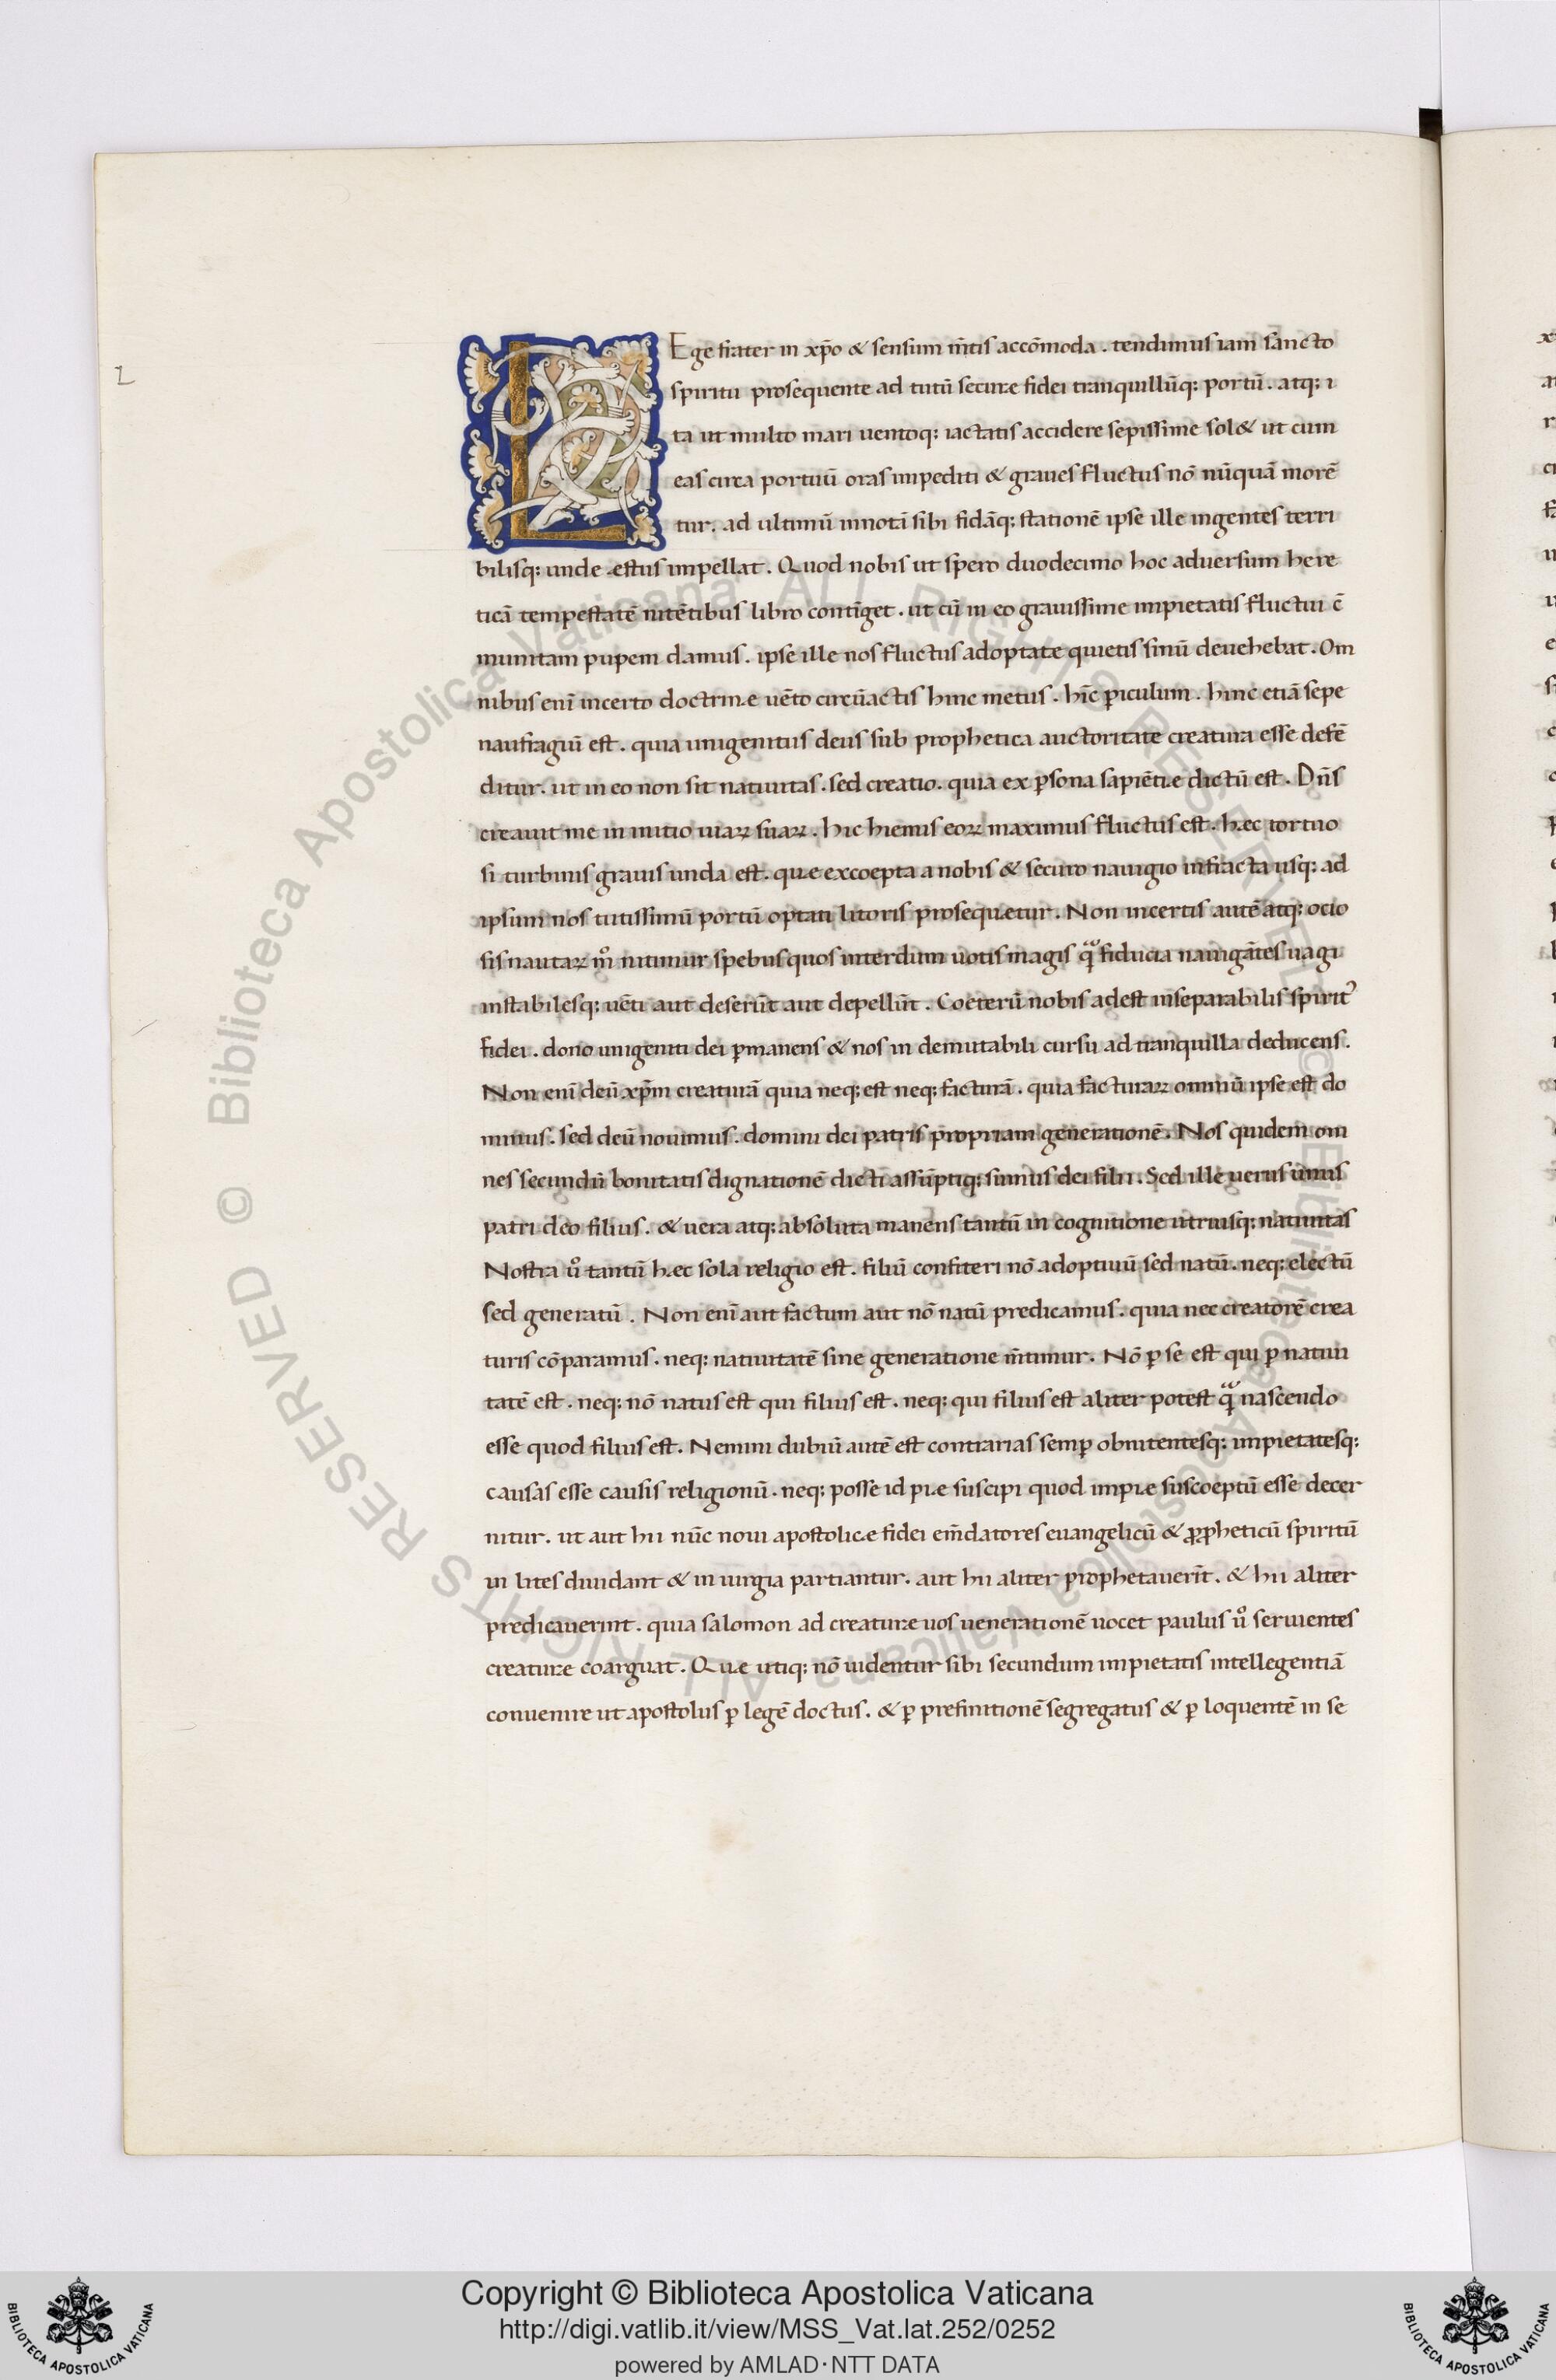 l
LEge frater in xp̄o & sensum m̄tis accōmoda . tendimus iam sancto
spiritu prosequente ad tutū secure fidei tranquillūq; portū . atq; i
ta ut multo mari uentoq; iactatis accidere sepissime sol& ut cum
eas circa portuū oras impediti & graues fluctus nō nūquā morē
tur . ad ultimū in notā sibi fidāq; stationē ipse ille ingentes terri
bilisq; unde estus impellat . Quod nobis ut spero duodecimo hoc aduersum here
ticā tempestatē nitētibus libro contīget . ut cū in eo grauissime impietatis fluctui c̄
munitam pupem damus . ipse ille nos fluctus adoptate quietis sinū deuehebat . Om
nibus enī incerto doctrinæ uēto circūactis hinc metus . hīc ꝑiculum . hinc etiā sepe
naufragiū est . quia unigenitus deus sub prophetica auctoritate creatura esse defē
ditur . ut in eo non sit natiuitas . sed creatio . quia ex ꝑsona sapiētiæ dictū est . Dn̄s
creauit me in initio uiaꝝ suaꝝ . hic hiemis eoꝝ maximus fluctus est . hæc tortuo
si turbinis grauis unda est . quæ excoepta a nobis & securo nauigio infracta usq; ad
ipsum nos tutissimū portū optati litoris prosequetur . Non incertis autē atq; ocio
sis nautaꝝ mͦ nitimur spebus quos interdum uotis magis qᷓ fiducia nauigātes uagi
instabilesq; uēti aut deserūt aut depellūt . Coeterū nobis adest inseparabilis spiritꝰ
fidei . dono unigeniti dei ꝑmanens & nos in demutabili cursu ad tranquilla deducens .
Non enī deū xp̄m creaturā quia neq; est neq; facturā . quia facturaꝝ omniū ipse est do
minus . sed deū nouimus . domini dei patris propriam generationē . Nos quidem om
nes secundū bonitatis dignationē dicti assūptiq; sumus dei filii . Sed ille uerus unus
patri deo filius . & uera atq; absoluta manens tantū in cognitione utriusq; natiuitas
Nostra uͦ tantū hæc sola religio est . filiū confiteri nō adoptiuū sed natū . neq; electū
sed generatū . Non enī aut factum aut nō natū predicamus . quia nec creatorē crea
turis cōparamus . neq; natiuitatē sine generatione m̄timur . Nō ꝑ se est qui ꝑ natiui
tatē est . neq; nō natus est qui filius est . neq; qui filius est aliter potest qᷓ nascendo
esse quod filius est . Nemini dubiū autē est contrarias semꝑ obnitentesq; impietatesq;
causas esse causis religionū . neq; posse id piæ suscipi quod impiæ suscoeptū esse decer
nitur . ut aut hii nūc noui apostolicæ fidei em̄datores euangelicū & ꝓpheticū spiritū
in lites diuidant & in iurgia partiantur . aut hii aliter prophetauerīt . & hii aliter
predicauerint . quia salomon ad creaturæ uos uenerationē uocet paulus uͦ seruientes
creaturæ coarguat . Quæ utiq; nō uidentur sibi secundum impietatis intellegentiā
conuenire ut apostolus ꝑ legē doctus . & ꝑ prefinitionē segregatus & ꝑ loquentē in se
© Biblioteca Apostolica Vaticana ALL RIGHTS RESERVED
© Biblioteca Apostolica Vaticana ALL RIGHTS RESERVED
Copyright © Biblioteca Apostolica Vaticana
http://digi.vatlib.it/view/MSS_Vat.lat.252/0252
powered by AMLAD · NTT DATA
BIBLIOTECA APOSTOLICA VATICANA
BIBLIOTECA APOSTOLICA VATICANA